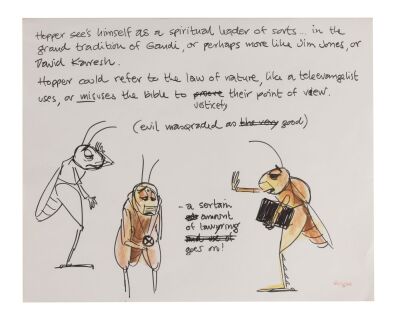 Hopper see's himself as a spiritual leader of sorts... in the
grand tradition of Gandi, or perhaps more like Jim Jones, or
David Karesh.
Hopper could refer to the law of nature, like a televangelist
uses, or misuses the bible to prove their point of view.
justify
(evil masqraded as the very good)
- a sertain
amount
of lawyring
and use of
goes on!